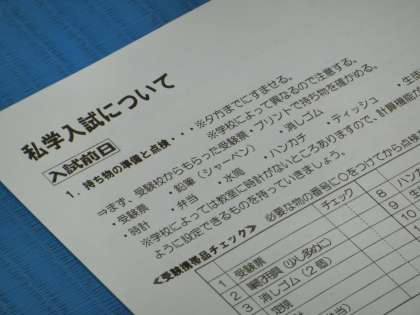 私学入試について
入試前日
1．持ち物の準備と点検・・・※夕方までにすませる。
※学校によって異なるので注意する。
⇒まず、受験校からもらった受験票、プリントで持ち物を確かめる。
・受験票 ・鉛筆（シャーペン） ・消しゴム ・ティッシュ ・生徒
・時計 ・弁当 ・水筒 ・ハンカチ
※学校によっては教室に時計がないところありますので、計算機能が
ように設定できるものを持っていきましょう。
≪受験携帯品チェック≫ 必要な物の番号に○をつけてから点検
チェック
1 受験票 8 ハンカ
2 鉛筆（少し多めに） 9
3 消しゴム（2個） 10